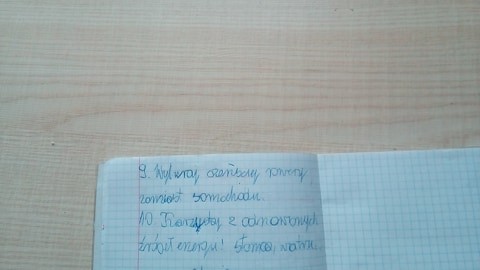 9. Wybieraj częściej rower
zamiast samochodu.
10. Korzystaj z odnawianych
źródeł energii! słońca, wiatru